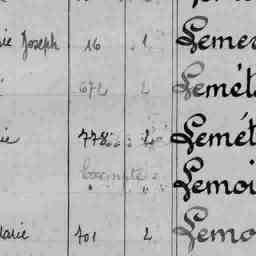 ie Joseph 16 1 Lemer
672 2 Lemét
ie 778 2 Lemét
Lemoi
Marie 701 2 Lemo